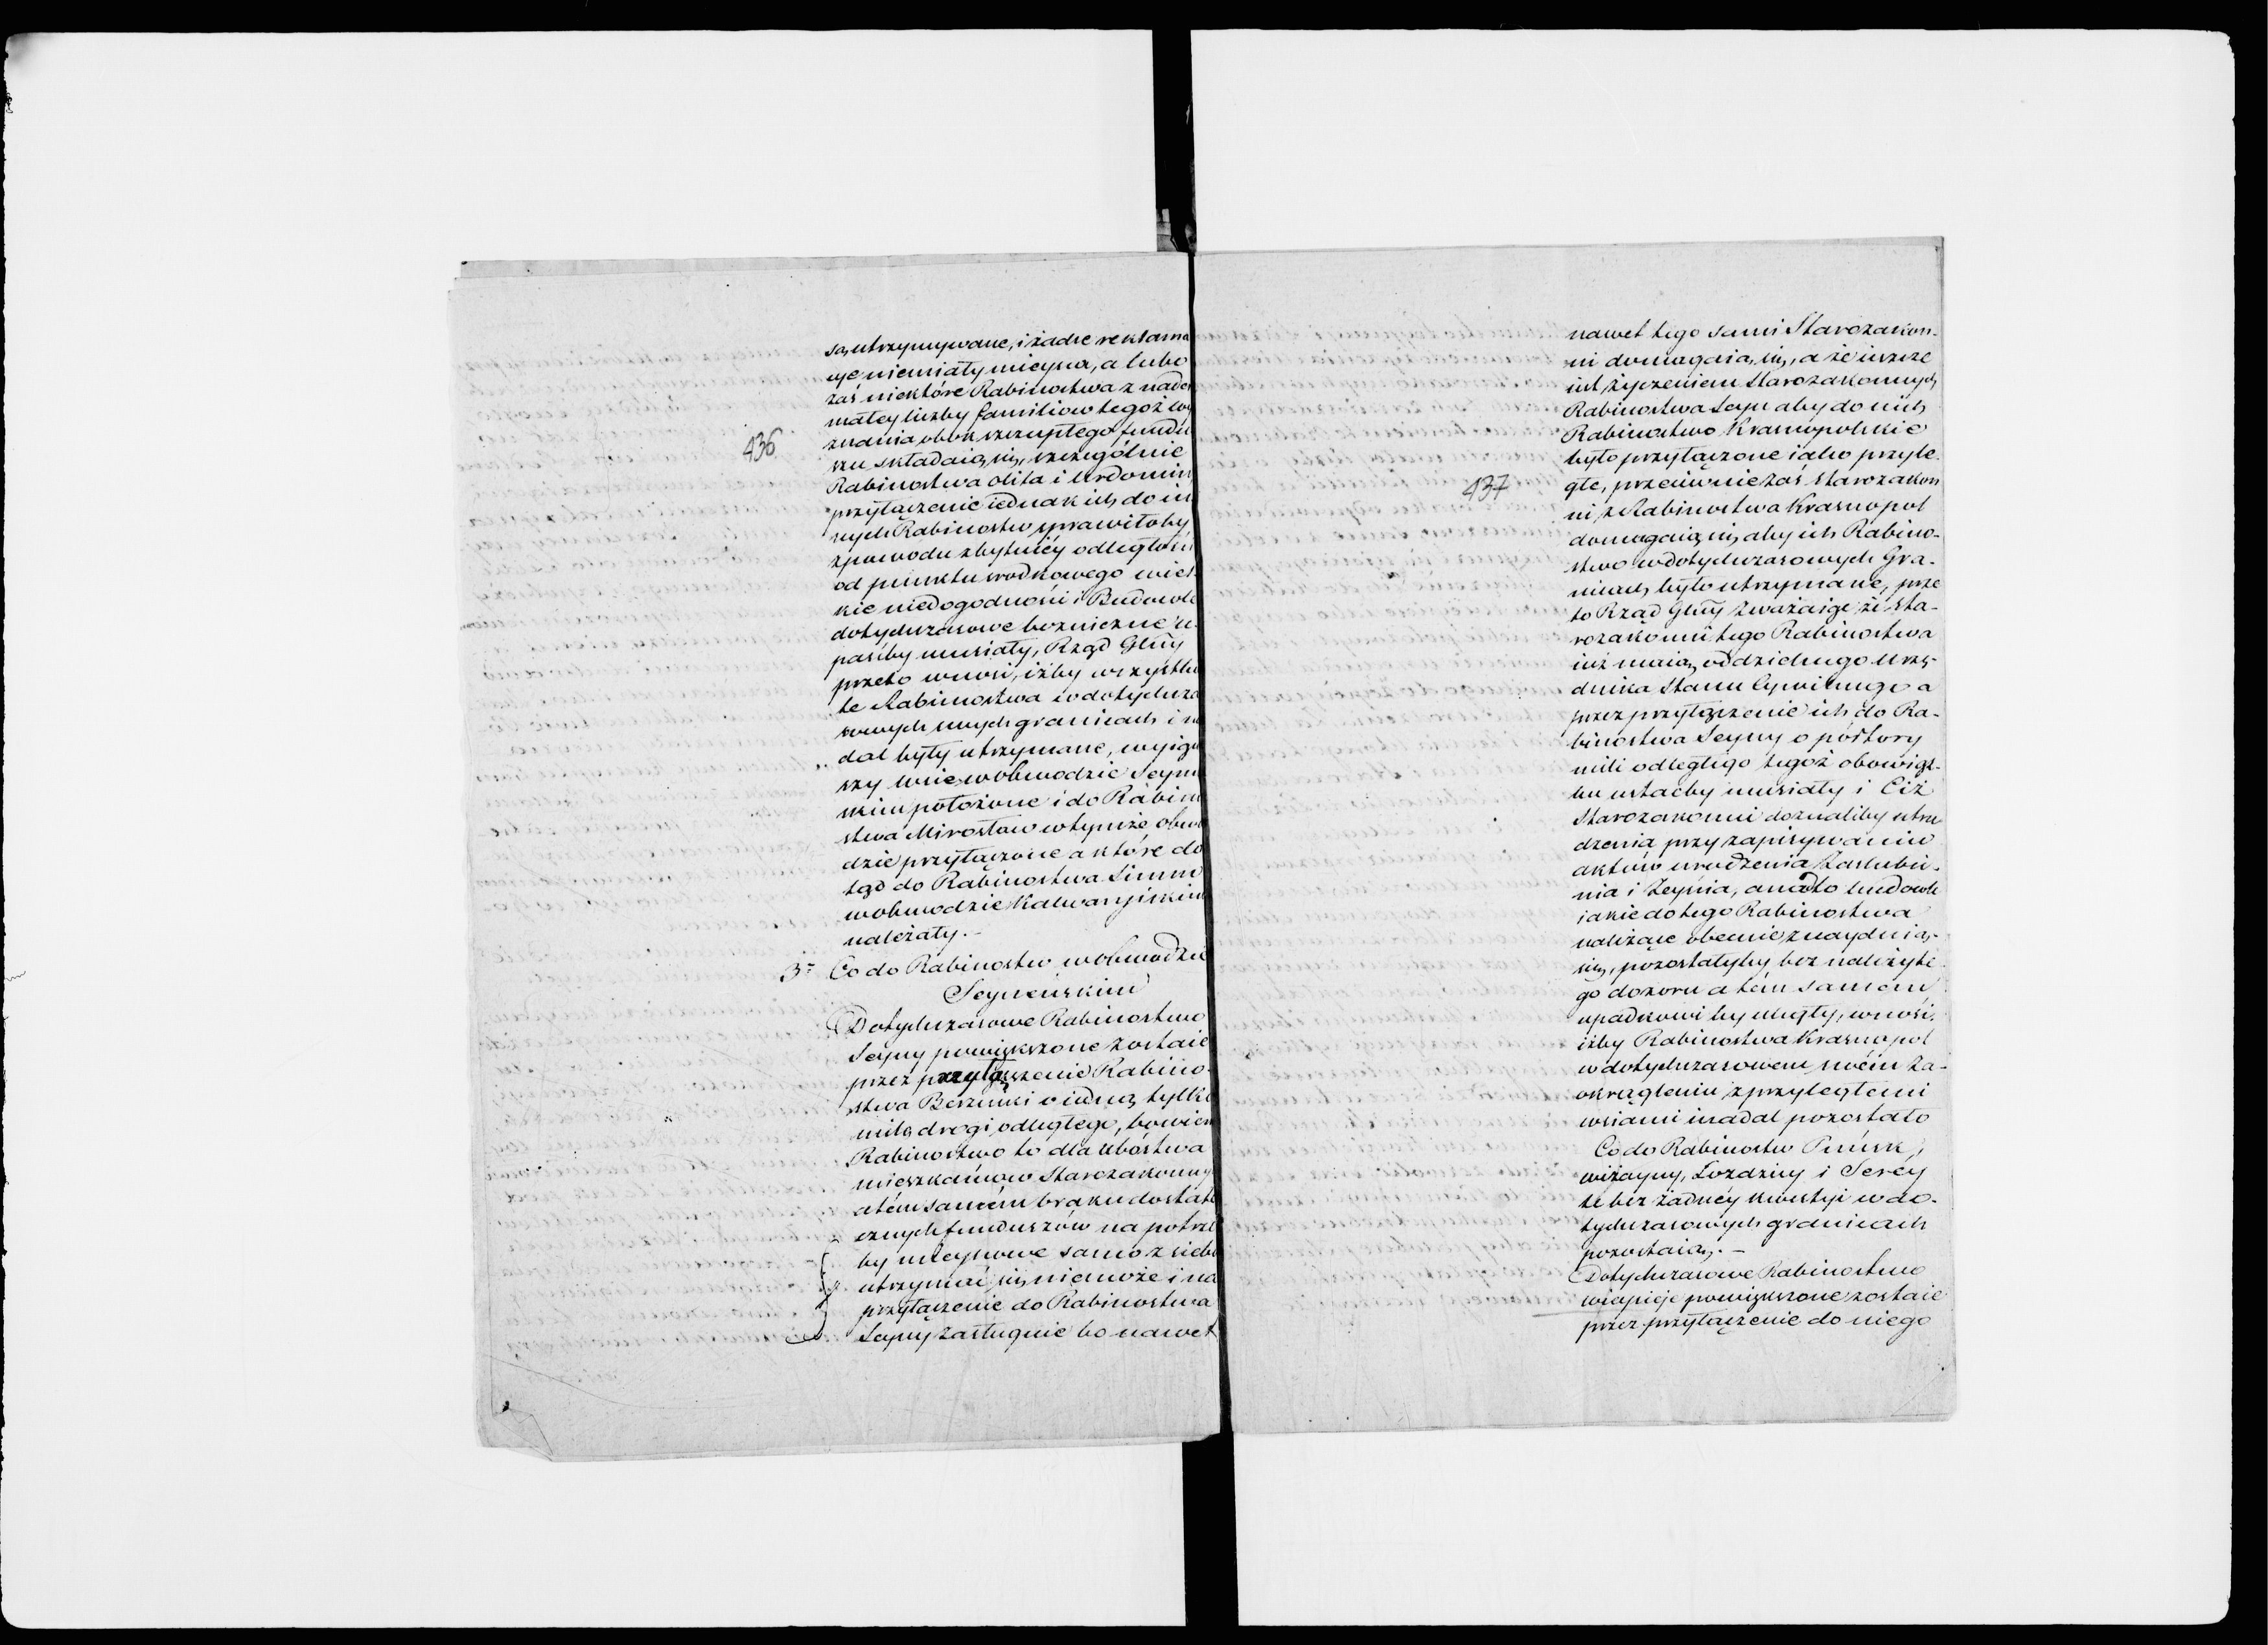 są utrzymywane, i żadne reklama
cye niemiały mieysca, a lubo
zaś niektóre Rabinostwa z nader
małey liczby familiow tegoż wy
znania obok szczupłego fundu
436.
szu składaią się, szczególnie
Rabinostwa Olita i Urdomin
przyłączenie iednak ich do in
nych Rabinostw sprawiłoby
z powodu zbytniéy odległośc
od punktu srodkowego wiel
kie niedogodności i Budowle
dotychczasowe boznicze u
paśćby musiały, Rząd Głny
przeto wnosi, iżby wszystkie
te Rabinostwa w dotychcza
sowych swych granicach i na
dal były utrzymane, wyiąw
szy wsie w obwodzie Seyn
skim położone i do Rabino
stwa Mirosław w tymże obwo
dzie przyłączone a które do
tąd do Rabinostwa Simno
w obwodzie Kalwaryiskim
należały. -
3- Co do Rabinostw w obwodzie
Seyneńskim
Dotychczasowe Rabinostwo
Seyny powiększone zostaie
przez przyłączenie Rabino
stwa Berzniki o iedną tylko
milę drogi odległego, bowiem
Rabinostwo to dla ubóstwa
mieszkańcow Starozakonny
a tém samém braku dostate
cznych funduszów na potrze
by mieyscowe samo z siebie
utrzymać się niemoże i na
przyłączenie do Rabinostwa
Seyny zasługuie bo nawet
nawet tego sami Starozakon-
ni domagaią się, a że ieszcze
iest życzeniem Starozakonnych
Rabinostwa Seyn aby do nich
Rabinostwo Krasnopolskie
było przyłączone iako przyle
437
głe, przeciwnie zaś starozakon
ni z Rabinostwa Krasnopol
domagaią się aby ich Rabino-
stwo w dotychczasowych Gra-
nicach było utrzymane, prze
to Rząd Głny zważaiąc że sta-
rozakonni tego Rabinostwa
iuż maią oddzielnego Urzę-
dnika Stanu Cywilnego a
przez przyłączenie ich do Ra-
binostwa Seyny o półtory
mili odległego tegoż obowiąz-
ku ustaćby musiały i Ciż
Starozakonni doznaliby utru
dzenia przy zapisywaniu
aktów urodzenia Zaslubie-
nia i Zeyscia, a nadto budowle
iakie do tego Rabinostwa
należące obecnie znayduią-
się, pozostałyby bez należyte
go dozoru a tém samém
upadkowi by uległy, wnosi,
iżby Rabinostwa Krasnopol
w dotychczasowem swéin Za-
okrągleniu z przyległemi
wsiami i nadal pozostało
Co do Rabinostw Puńsk,
wiżayny, Łozdziey i Serey
te bez żadnéy kwestyi w do-
tychczasowych granicach
pozostaią. -
Dotychczasowe Rabinostwo
wieyscie powiększone zostaie
przez przyłączenie do niego